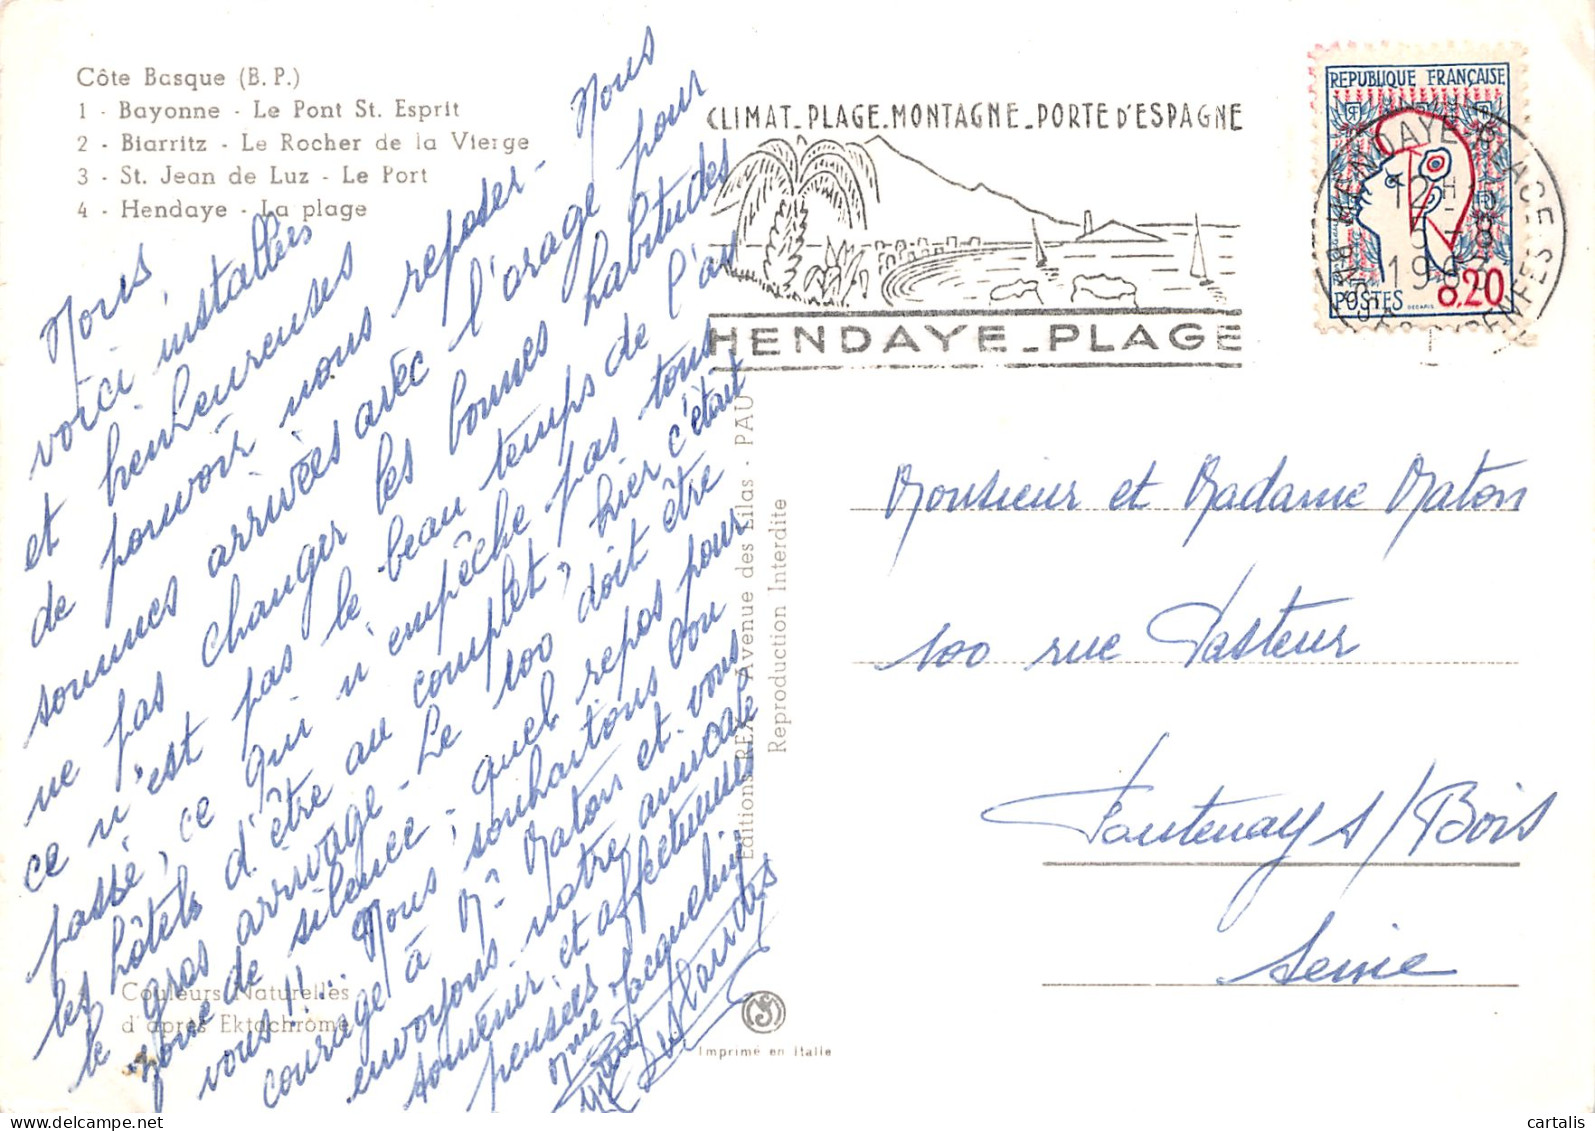 Côte Basque (B. P.)
1 - Bayonne - Le Pont St. Esprit
2 - Biarritz - Le Rocher de la Vierge
3 - St. Jean de Luz - Le Port
4 - Hendaye - La plage
Nous
voici installées
et bienheureuses
de pouvoir nous reposer - Nous
sommes arrivées avec l'orage pour
ne pas changer les bonnes habitudes
ce n'est pas le beau temps de l'an
passé, ce qui n'empêche pas tous
les hôtels d'être au complet, hier c'était
le gros arrivage - Le 100 doit être
zone de silence, quel repos pour
vous!!. Nous souhaitons bon
courage à Mr Maton et vous
envoyons notre amical
souvenir et affectueuses
pensées
Mme Jacquelin
Couleurs Naturelles
d'après Ektachrome
Editions REX Avenue des Lilas - PAU
Reproduction Interdite
Imprimé en Italie
CLIMAT_PLAGE_MONTAGNE_PORTE D'ESPAGNE
HENDAYE_PLAGE
REPUBLIQUE FRANÇAISE
POSTES 0.20
DECARIS
HENDAYE PLAGE
12 H 15
5 - 8
196
BSES PYRENEES
Monsieur et Madame Maton
100 rue Pasteur
Fontenay s/Bois
Seine
cartalis